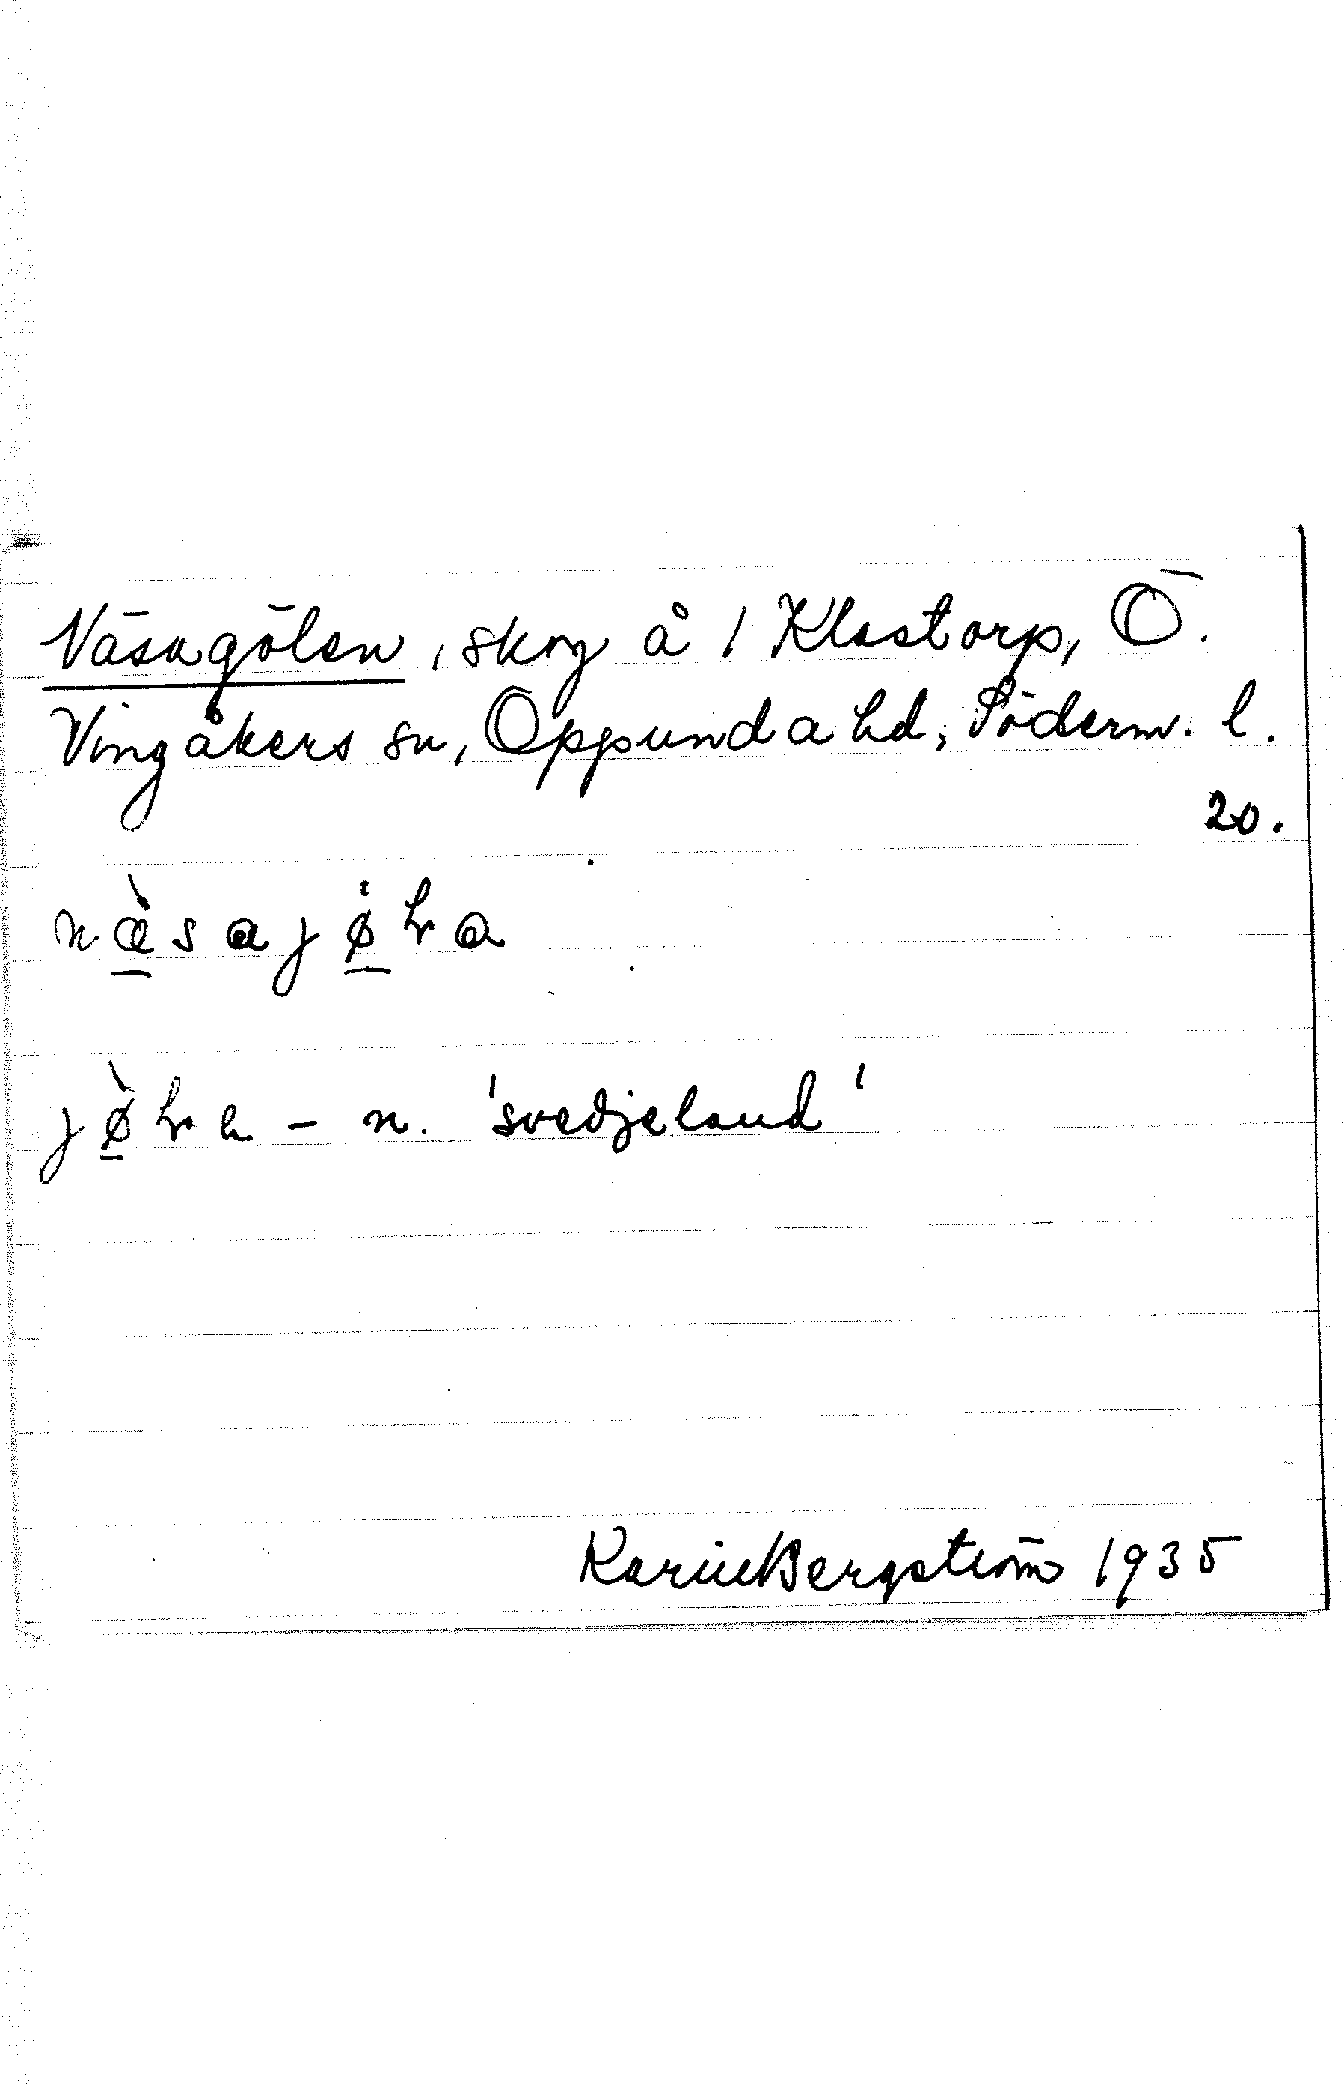 Näsagölen, skog å 1 Klastorp, Ö.
Vingåkers sn, Oppunda hd, Söderm. l.
20.
näsajøla
jøla - n. 'svedjeland'
Karin Bergström 1935